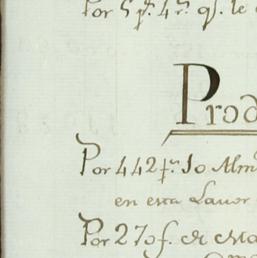 Por 5 p.s 4 r.s q.s le
Prod
Por 442 f.s 10 Alm
en esta Lavor
Por 270 f. de esta